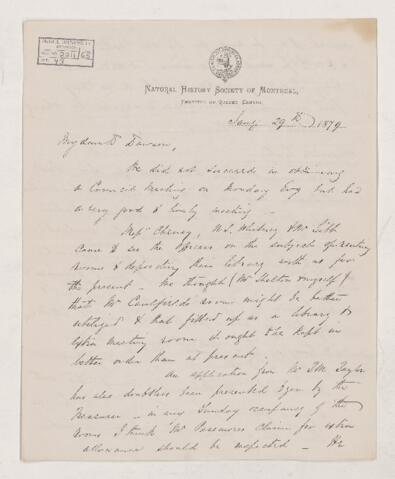 NATURAL HISTORY SOCIETY OF MONTREAL,
Jany 29th 1879
My dear Dr Dawson,
We did not succeed in obtaining
a Council Meeting on Monday Evg but had
a very good & lively meeting -
Messrs Chesney, N.S. Whitney & Mr
came to see the Officers on the subject of renting
rooms & depositing their library with us for
the present - We thought (Mr Shelton & myself)
that Mr Caulfields room might be better
utilized & that fitted up as a library &
extra meeting room it ought to be kept in
better order than at present.
An application from Mr T.M. Taylor
has also doubtless been presented to you by the
Treasurer - in any Sunday occupancy of the
rooms I think Mr Passmores Claim for extra
allowance should be respected - He